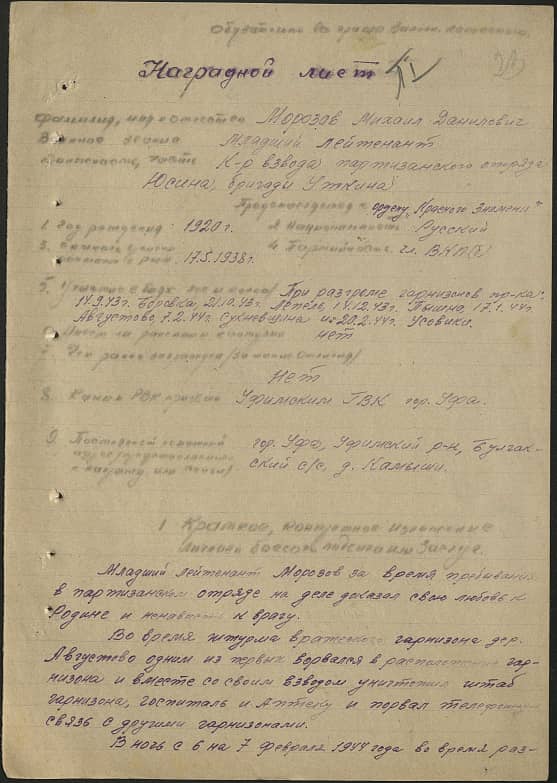 Наградной лист
Фамилия, имя и отчество Морозов Михаил Данилович
Военное звание Младший Лейтенант
Должность, часть К-р взвода партизанского отряда
Юсина, бригады Уткина
Представляется к ордену "Красного Знамени"
1. Год рождения: 1920 г. 2. Национальность Русский
3. 17.5.1938 г. 4. Партийность чл. ВКП(б)
5. Участие в При разгроме гарнизонов пр-ка:
14.9.43г. Боровка, 21.10.43г. Лепель, 14.12.43г. Пышна, 17.1.44г.
Августово 7.2.44г. Сухневщина и 20.2.44г. Усовики.
6. нет
7. Чем ранее награжден /за какие отличия/
Нет
8. Каким РВК призван Уфимским ГВК гор. Уфа.
9. Постоянный гор. Уфа, Уфимский р-н, Булгак-
ский с/с, д. Камыши.
1 Краткое, конкретное изложение
личного боевого подвига или заслуг.
Младший Лейтенант Морозов за время пребывания
в партизанском отряде на деле доказал свою любовь к
Родине и ненависть к врагу.
Во время штурма вражеского гарнизона дер.
Августово одним из первых ворвался в расположение гар-
низона и вместе со своим взводом уничтожил штаб
гарнизона, госпиталь и Аптеку и порвал телефонную
связь с другими гарнизонами.
В ночь с 6 на 7 февраля 1944 года во время раз-